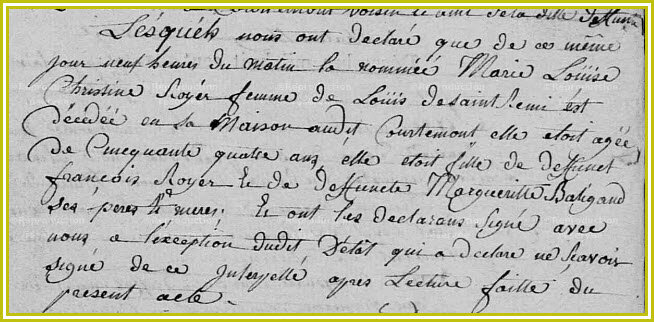 voisin et ami de la ditte deffunte
Lesquels nous ont declaré que de ce même
jour neuf heures du matin la nommée Marie Loüise
Christine Royer femme de Loüis desaint Remi est
décédée en sa Maison audit Courtemont elle etoit agée
de Cincquante quatre ans, elle etoit fille de deffunct
françois Royer Et de deffuncte Margueritte Baligand
ses peres Et meres; Et ont les declarans signé avec
nous a l'exception dudit Détât qui a declare ne scavoir
signé de ce Interpellé apres Lecture faitte du
present acte.